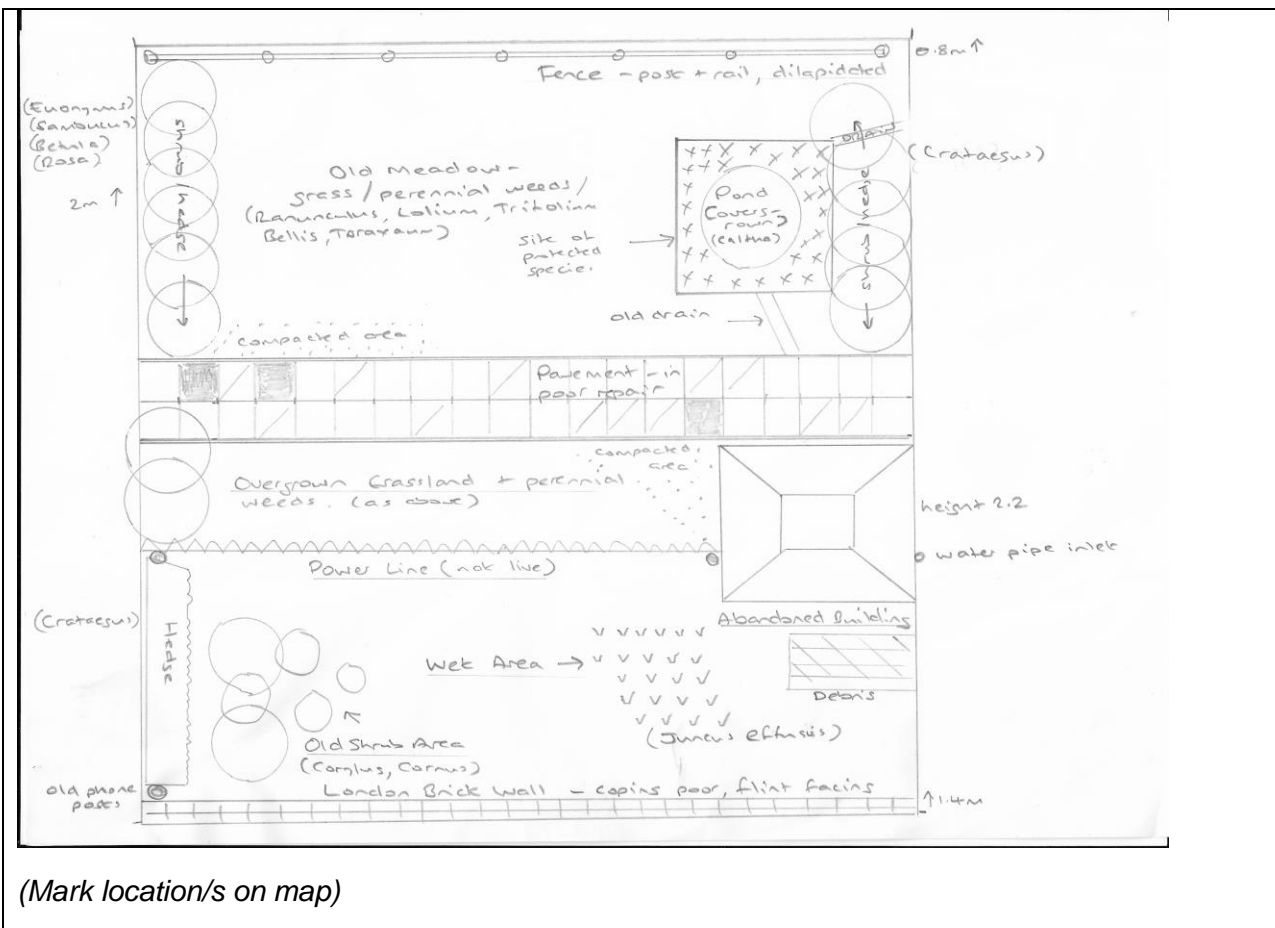 0.8m ↑
Fence - post + rail, dilapidated
(Euonymus)
(Sambucus)
(Betula)
(Rosa)
2m ↑
shrub/hedge
Old Meadow-
grass/perennial weeds/
(Ranunculus, Lolium, Trifolium
Bellis, Taraxaum)
DRAIN
(Crataegus)
Pond
Covers-
rown
(caltha)
shrub/hedge
site of
protected
specie.
old drain
compacted area
Pavement - in
poor repair
compacted
area
Overgrown Grassland + perennial
weeds. (as above)
height 2.2
water pipe inlet
Power Line (not live)
Abandoned Building
(Crataegus)
Hedge
Wet Area →
Debris
(Juncus effusus)
Old Shrub Area
(Corylus, Cornus)
old phone
posts
London Brick Wall - coping poor, flint facing
↑1.4m
(Mark location/s on map)